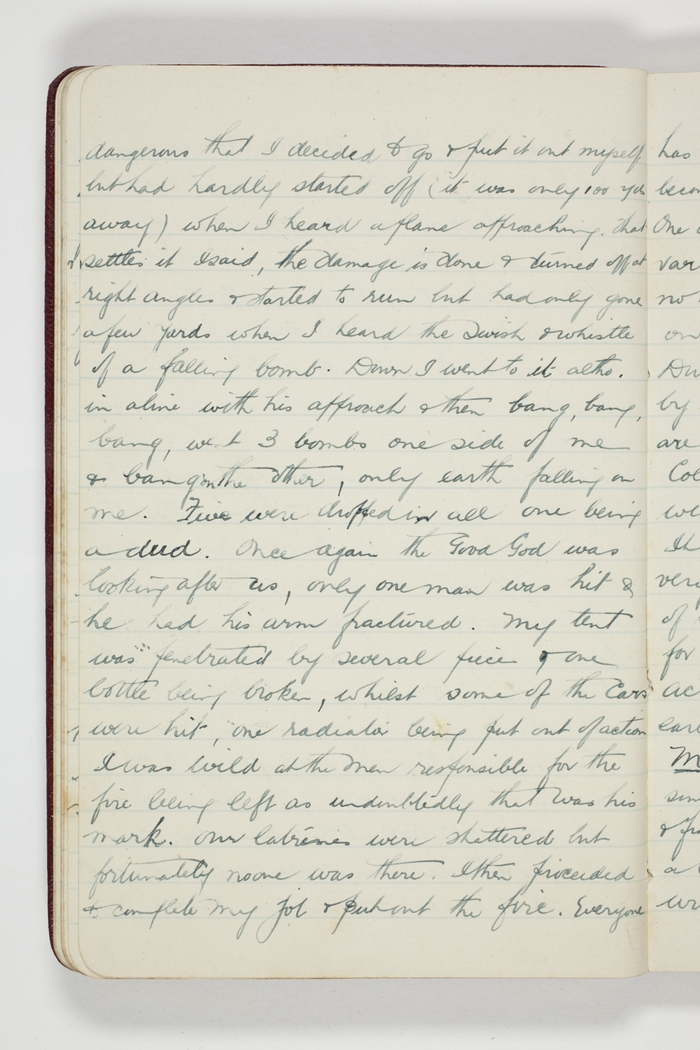 dangerous that I decided to go & put it out myself
but had hardly started off (it was only 100 yds
away) when I heard a plane approaching. That
settles it I said, the damage is done & turned off at
right angles & started to run but had only gone
a few yards when I heard the swish & whistle
of a falling bomb. Down I went to it altho.
in a line with his approach & then bang, bang,
bang, went 3 bombs one side of me
& bang on the other, only earth falling on
me. Five were dropped in all one being
a dud. Once again the Good God was
looking after us, only one man was hit &
he had his arm fractured. My tent
was penetrated by several piece & one
bottle being broken, whilst some of the Cars
were hit, one radiator being put out of action
I was wild at the men responsible for the
fire being left as undoubtedly that was his
mark. Our latrines were shattered but
fortunately no one was there. I then proceeded
to complete my job & put out the fire. Everyone
has
One
no
by
are
of
for